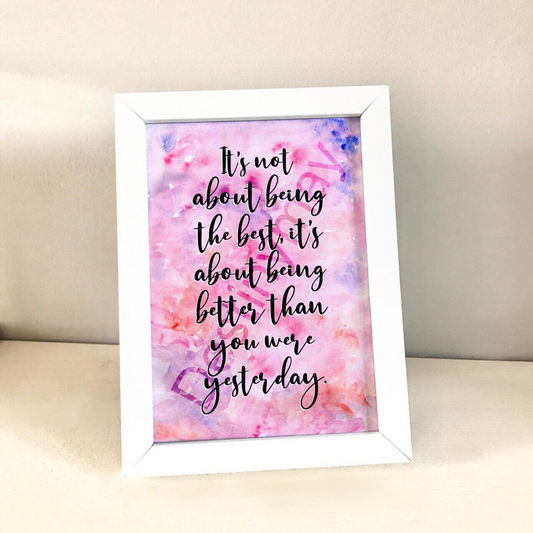 It's not
about being
the best, it's
about being
better than
you were
yesterday.